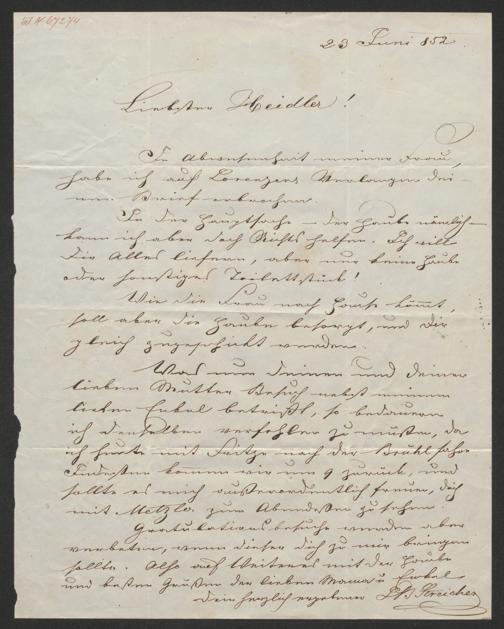 23 Juni 852
Liebster Heidler!
In Abwesenheit meiner Frau,
habe ich auf Lorenzens Verlangen dei-
nen Brief erbrochen.
In der Hauptsache – der Haube nämlich –
kann ich aber doch Nichts helfen. Ich will
Dir Alles liefern, aber nur keine Haube
oder sonstiges Toilettstück!
Wie die Frau nach Hause kömt,
soll aber die Haube besorgt, und Dir
gleich zugeschickt werden.
Was nun deinen und deiner
lieben Mutter Besuch nebst meinem
lieben Enkel betrifft, so bedauere
ich denselben verfehlen zu müßen, da
ich heute mit Fritze nach der Brühl fahre
Indeßen kommen wir um 9 zurück, und
sollte es mich außerordentlich freuen, dich
mit Metzlo zum Abendeßen zu sehen.
Gratulationsbesuche werden aber
verbeten, wenn dieser dich zu mir bringen
sollte. Also auf Weiteres mit der Haube
und besten Grüßen der lieben Mama u Enkel
Dein herzlich ergebener JBStreicher